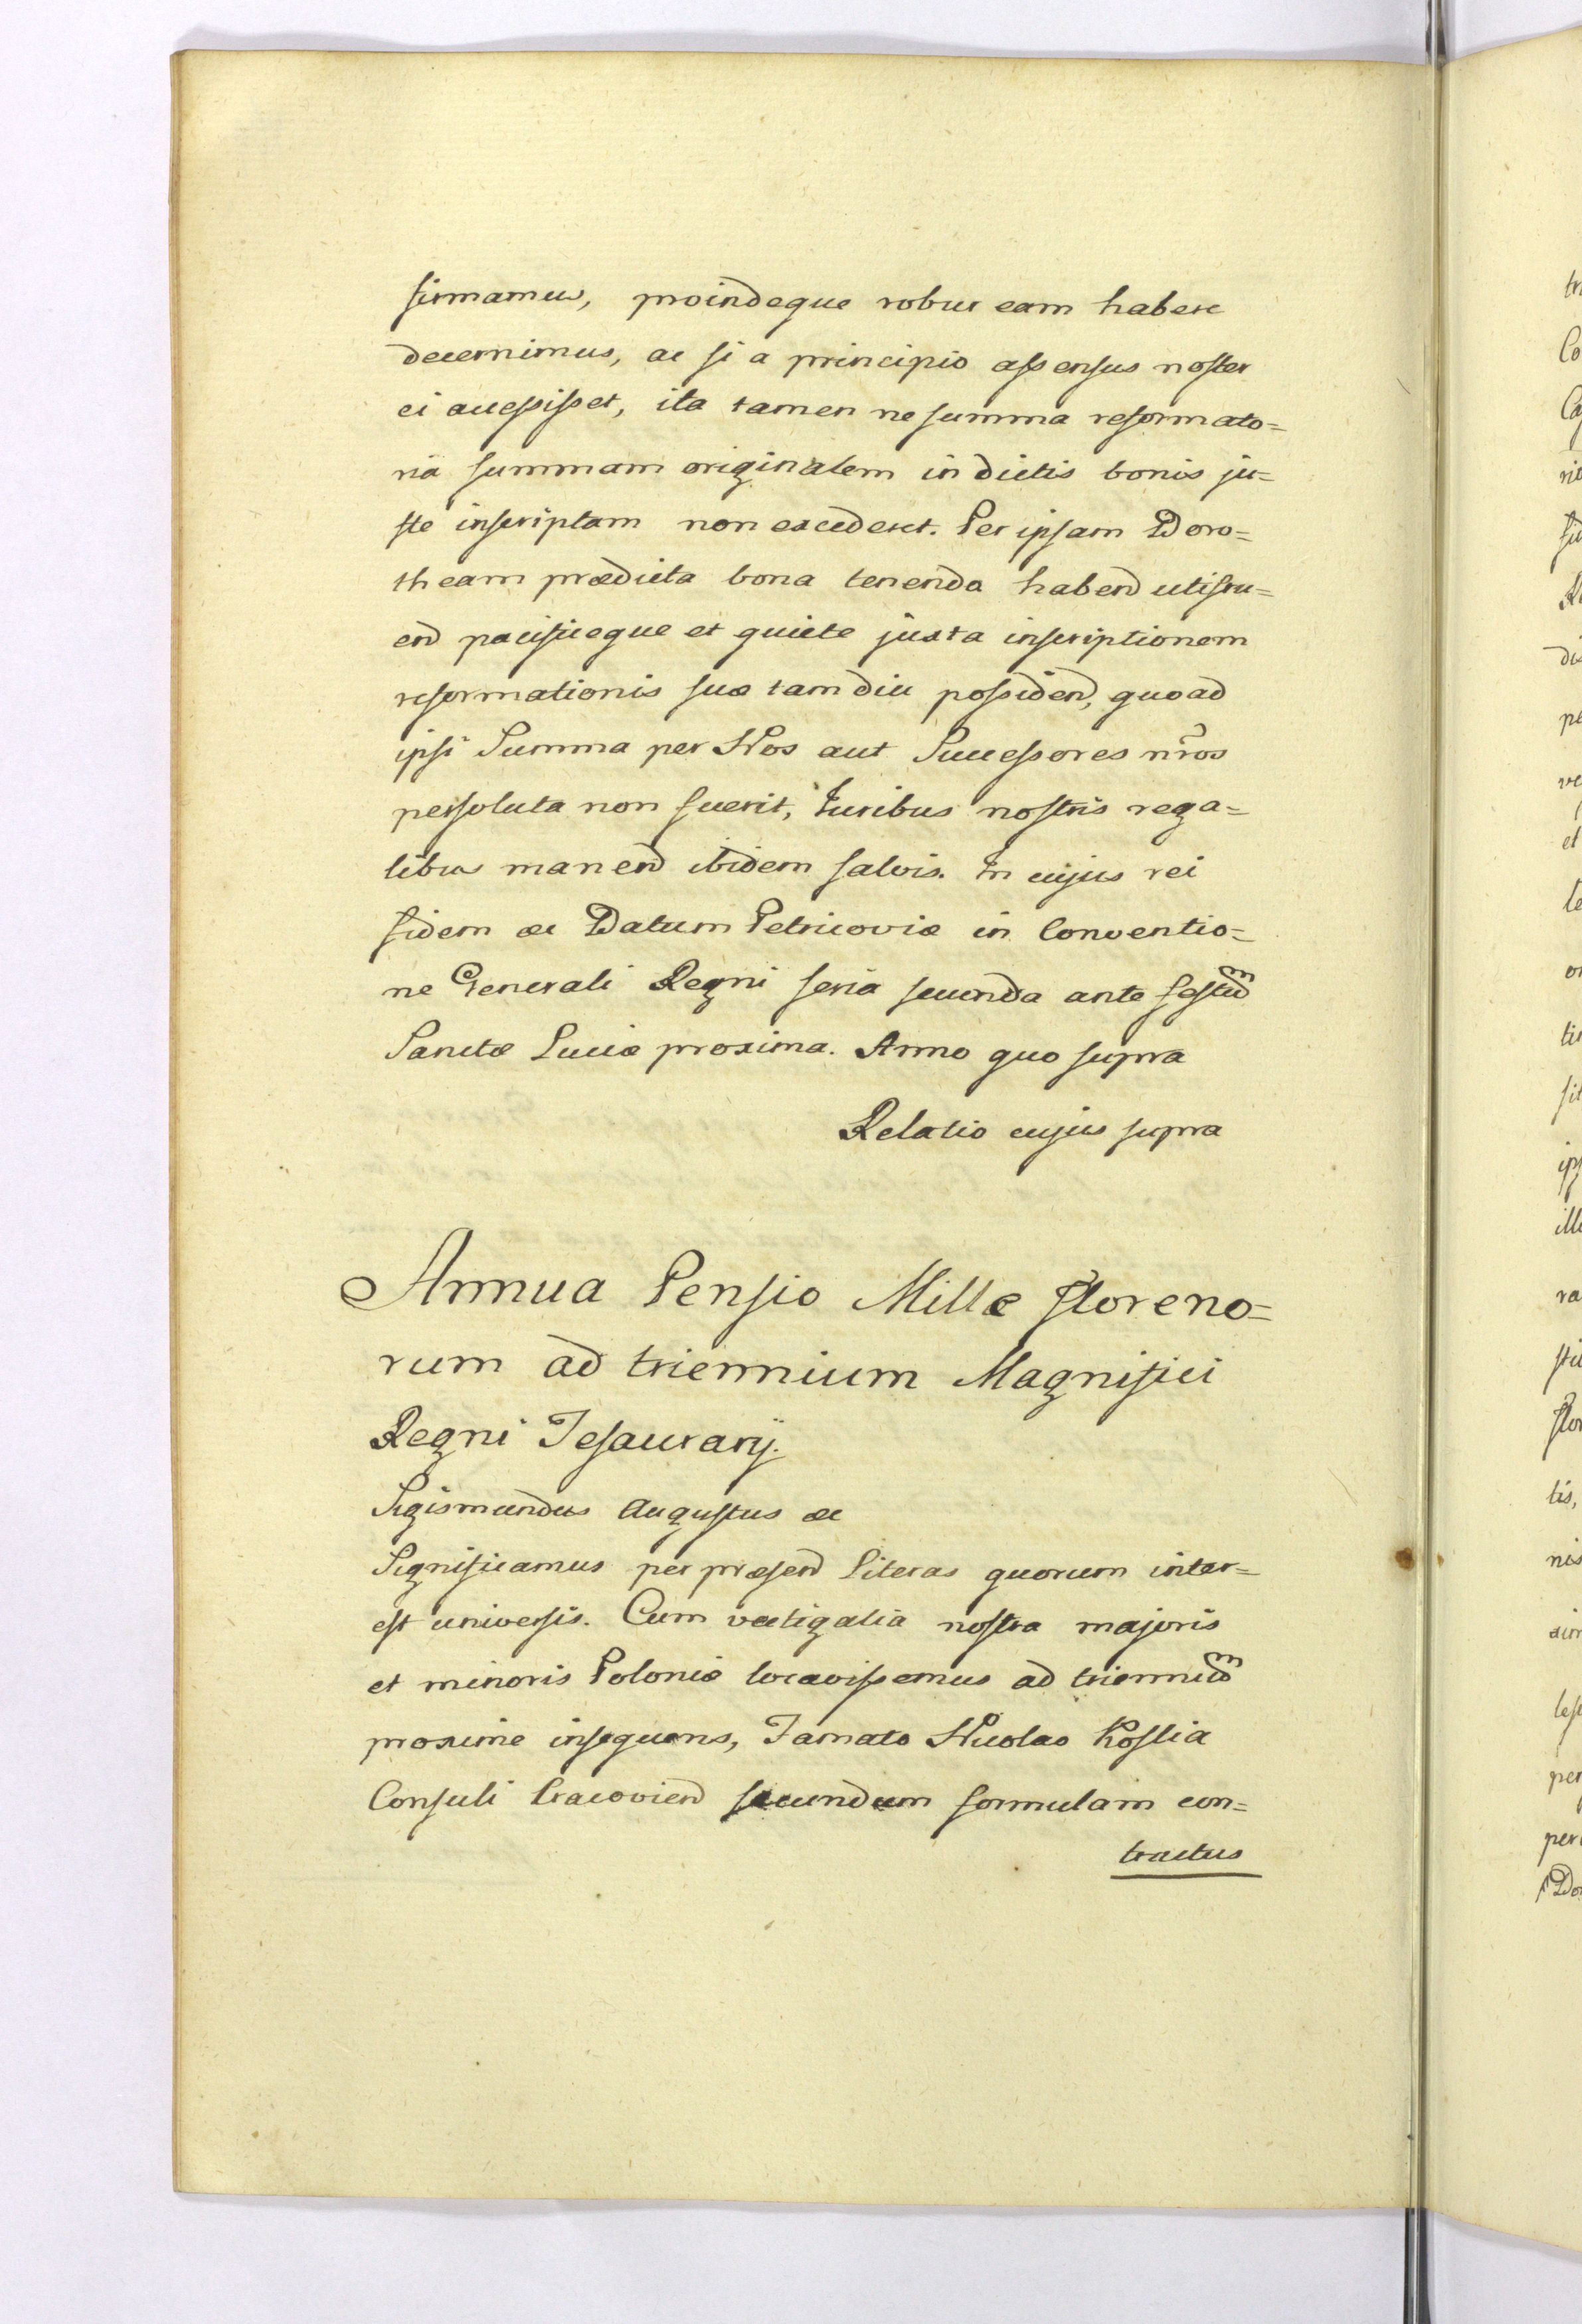 firmamus, proindeque robur eam habere
decernimus, ac si a principio assensus noster
ei accessisset, ita tamen ne summa reformato=
ria summam originalem in dictis bonis ju=
ste inscriptam non excederet. Per ipsam Doro=
theam prædicta bona tenenda habend utifru=
end pacificeque et quiete juxta inscriptionem
reformationis suæ tamdiu possidend, quoad
ipsi Summa per Nos aut Successores nr̃os
persoluta non fuerit, Juribus nostris rega=
libus manend ibidem salvis. In cujus rei
fidem &c Datum Petricoviæ in Conventio=
ne Generali Regni feria secunda ante festum
Sanctæ Luciæ proxima. Anno quo supra
Relatio cujus supra
Annua Pensio Mille floreno=
rum ad triennium Magnifici
Regni Tesaurarij.
Sigismundus Augustus &c
Significamus per præsend Literas quorum inter=
est universis. Cum vectigalia nostra majoris
et minoris Poloniæ locavissemus ad triennium
proxime insequens, Famato Nicolao
Consuli Cracoviend secundum formulam con=
tractus